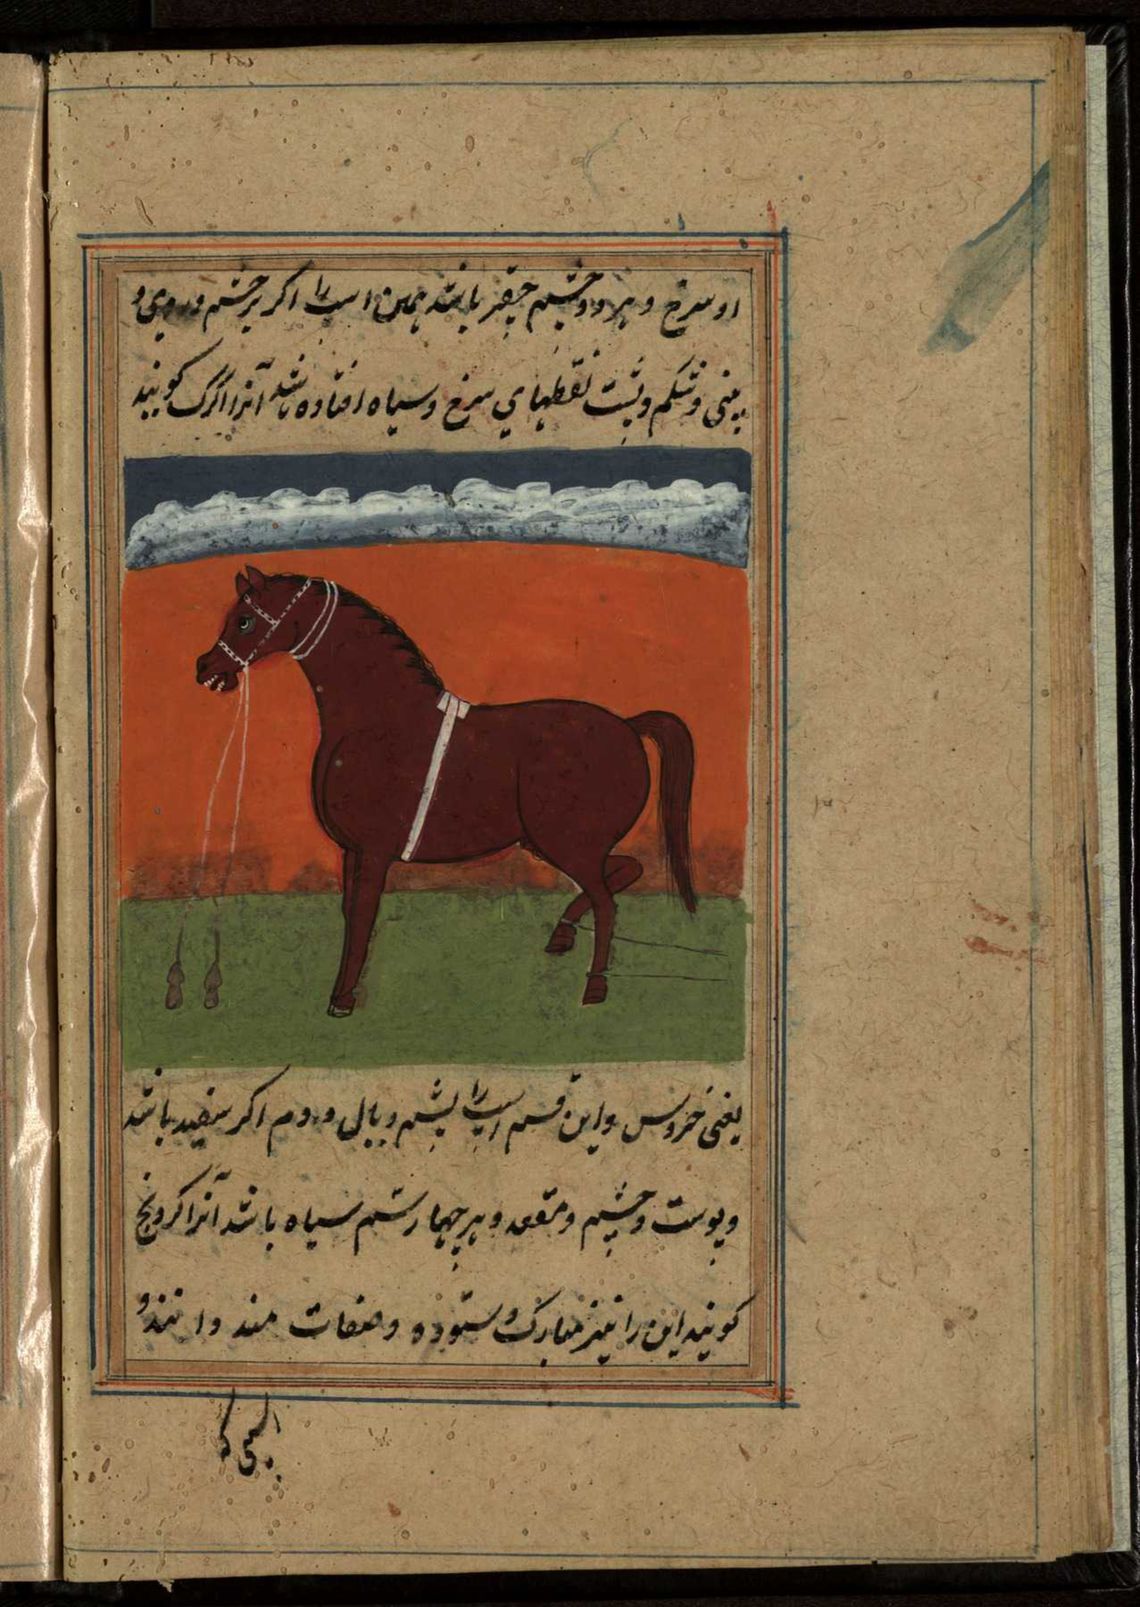 او سرخ و هر دو چشم چقر باشد همین اسپ را اکر بر چشم و روی و
بینی و شکم و پشت نقطهای سرخ و سیاه افتاده باشد آنرا اکرک کویند
یعنی خروس و این قسم اسپ را پشم و یال و دم اکر سفید باشد
و پوست و چشم و مقعد و هر چهار سم سیاه باشد آنرا کرونج
کویند این را نیز مبارک و ستوده و صفات مند دانند و